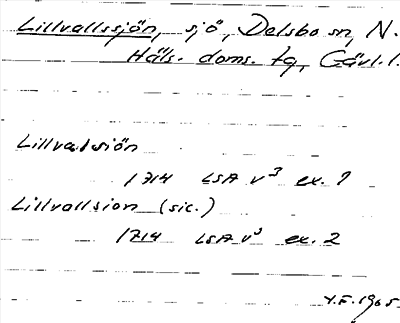 Lillvallssjön, sjö, Delsbo sn, N.
Häls. doms. tg, Gävl. l.
Lillvalsiön
1714 LSA v³ ex. 1
Lillvallsion (sic.)
1714 LSA v³ ex. 2
Y.F. 1965.